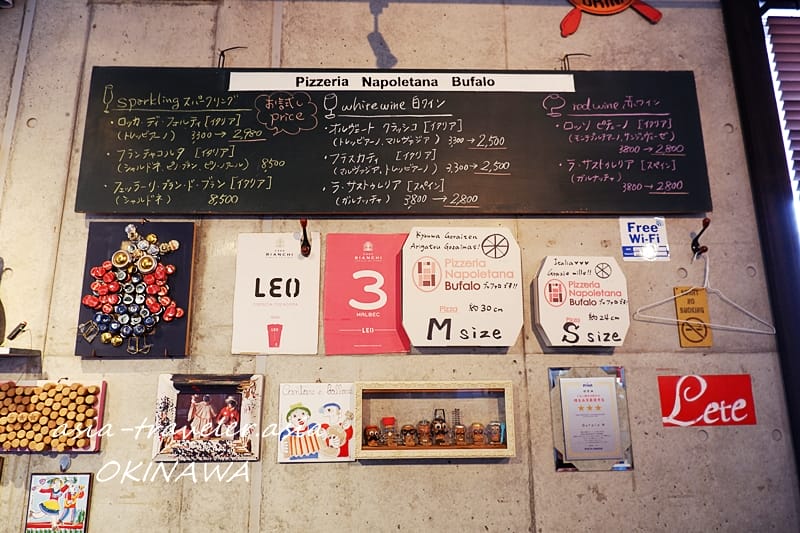 Pizzeria Napoletana Bufalo
Sparkling スパークリング
お試し
price
・ロッカ・ディ・フォルティ [イタリア]
(トレッビアーノ) 3300→2,980
・フランチャコルタ [イタリア]
(シャルドネ、ピノ・ブラン、ピノ・ノアール) 8500
・フェッラーリ・ブラン・ド・ブラン [イタリア]
(シャルドネ) 8,500
white wine 白ワイン
・オルヴェート クラッシコ [イタリア]
(トレッビアーノ、マルヴァジア) 3300→2,500
・フラスカティ [イタリア]
(マルヴァジア、トレッビアーノ) 3,300→2,500
・ラ・サストゥレリア [スペイン]
(ガルナッチャ) 3800→2,800
red wine 赤ワイン
・ロッソ ピチェーノ [イタリア]
(モンテプルチアーノ、サンジョヴェーゼ)
3800→2,800
・ラ・サストゥレリア [スペイン]
(ガルナッチャ)
3800→2,800
BIANCHI
LEO
BIANCHI
3
MALBEC
LEO
Kyuuwa Goraiten
Arigatou Gozaimas!!
Pizzeria
Napoletana
Bufalo ブッファロです!!
Pizza 約30cm
M size
Italia♥♥♥
Grazie mille!!
Pizzeria
Napoletana
Bufalo ブッファロです!!
Pizza 約24cm
S size
Free
Wi-Fi
NO
SMOKING
Lete
asia-traveler.asia
OKINAWA